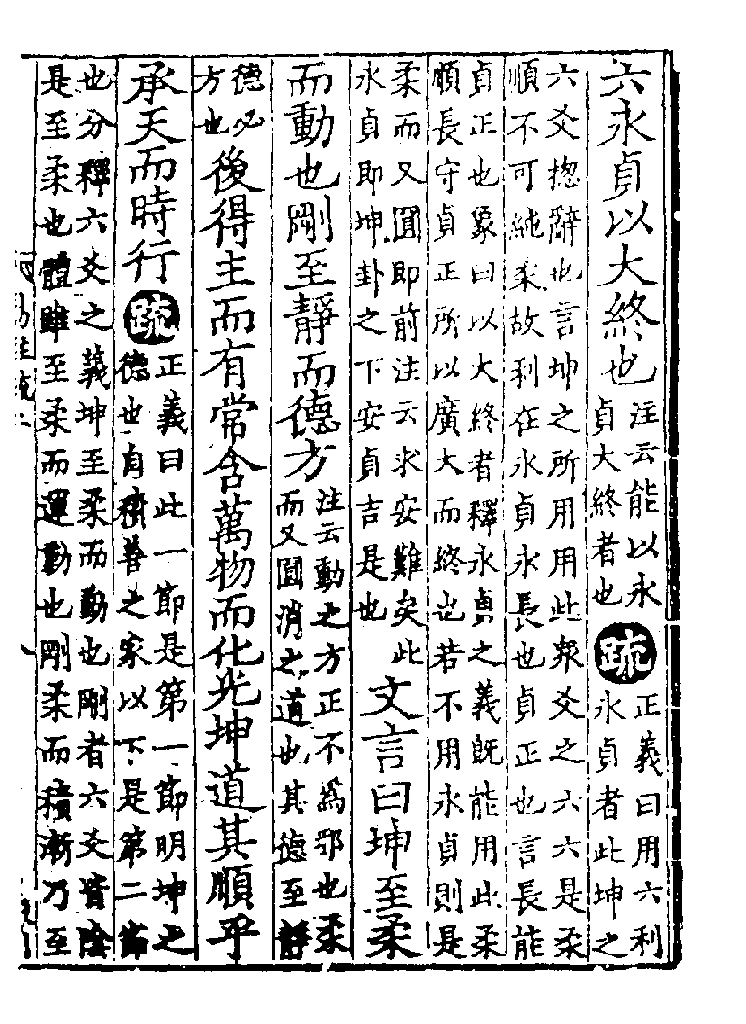 六永貞以大終也
注云能以永
貞大終者也
疏
正義曰用六利
永貞者此坤之
六爻揔辭也言坤之所用用此衆爻之六六是柔
順不可純柔故利在永貞永長也貞正也言長能
貞正也象曰以大終者釋永貞之義既能用此柔
順長守貞正所以廣大而終也若不用永貞則是
柔而又圓即前注云求安難矣此
永貞即坤卦之下安貞吉是也
文言曰坤至柔
而動也剛至靜而德方
注云動之方正不爲邪也柔
而又圓消之道也其德至靜
德必
方也
後得主而有常含萬物而化光坤道其順乎
承天而時行
疏
正義曰此一節是第一節明坤之
德也自積善之家以下是第二節
也分釋六爻之義坤至柔而動也剛者六爻皆陰
是至柔也體雖至柔而運動也剛柔而積漸乃至